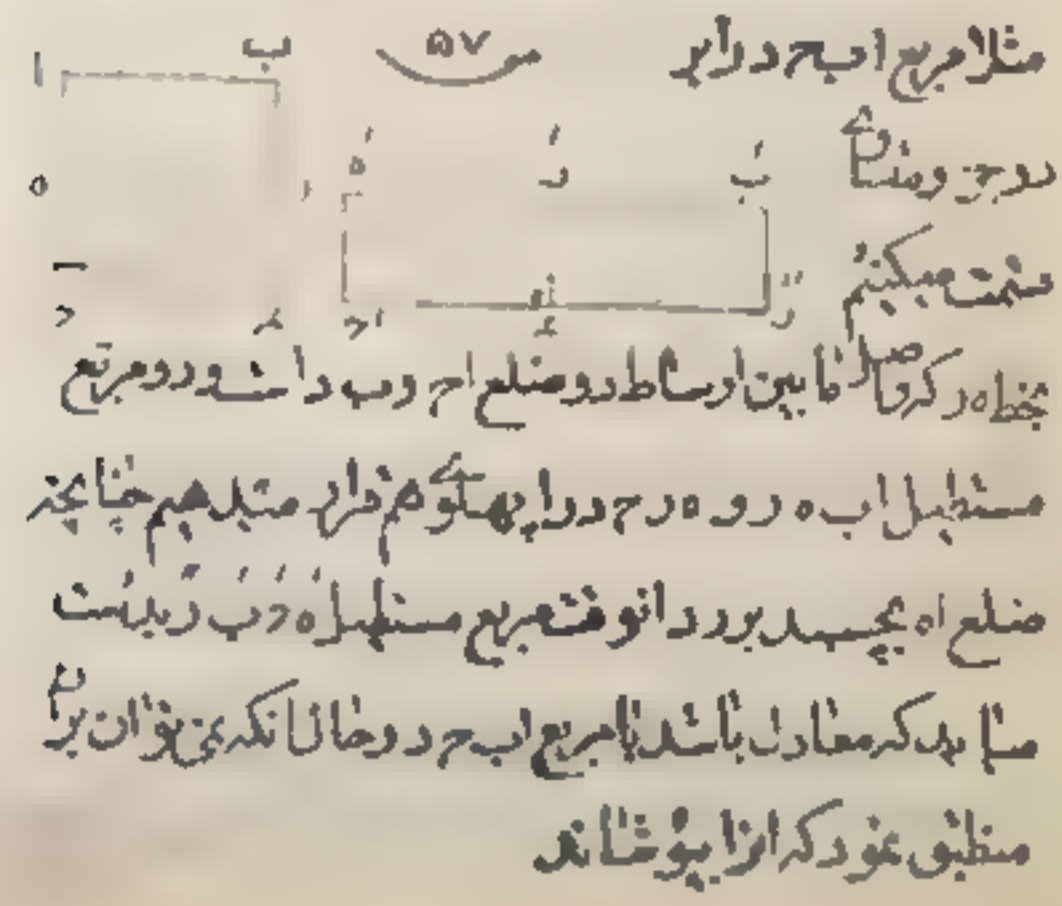 مثلا مربع ا ب ح د را بر
۵۷
ب
ا
دو جزو متساوی
بَ
وَ
هَ
ه
قسمت میکنیم
ح
د
بخط ه ر که واصل ما بین اوساط دو ضلع ا ح و ب د است و دو مربع
مستطیل ا ب ه ر و ه ر ح د را پهلوی هم قرار میدهیم چنانچه
ضلع ا ه بچسبد بر د د انوقت مربع مستطیل هَ حَ بَ رً بدست
میاید که معادل باشد با مربع ا ب ح د و حال آنکه نمیتوان بر
منطبق نمود که انرا بپوشاند